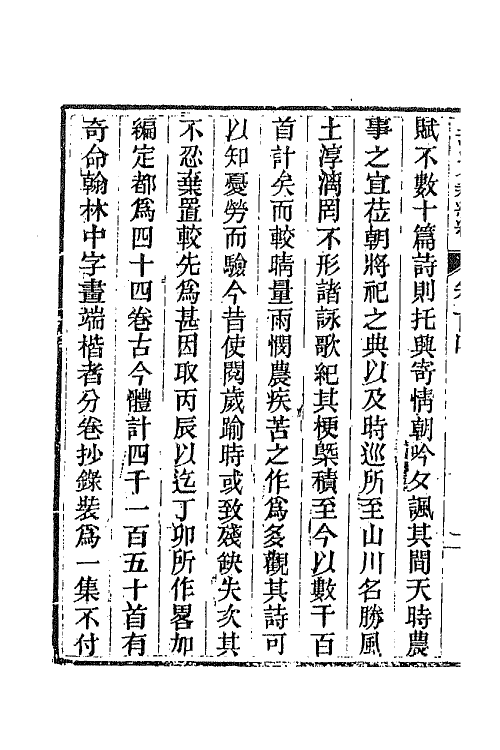 賦不數十篇詩則托興寄情朝吟夕諷其間天時農
事之宜莅朝將祀之典以及時巡所至山川名勝風
土淳漓罔不形諸詠歌紀其梗槩積至今以數千百
首計矣而較晴量雨憫農疾苦之作爲多觀其詩可
以知憂勞而驗今昔使閱歲踰時或致殘缺失次其
不忍棄置較先爲甚因取丙辰以迄丁卯所作畧加
編定都爲四十四卷古今體計四千一百五十首有
奇命翰林中字畫端楷者分卷抄錄裝爲一集不付